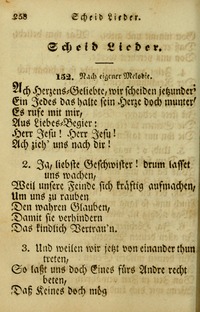 258 Scheid Lieder.
Scheid Lieder.
152. Nach eigener Melodie.
Ach Herzens-Geliebte, wir scheiden jetzunder!
Ein Jedes das halte sein Herze doch munter!
Es rufe mit mir,
Aus Liebes-Begier:
Herr Jesu! Herr Jesu!
Ach zieh' uns nach dir!
2. Ja, liebste Geschwister! drum lasset
uns wachen,
Weil unsere Feinde sich kräftig aufmachen,
Um uns zu rauben
Den wahren Glauben,
Damit sie verhindern
Das kindlich Vertrau'n.
3. Und weilen wir jetzt von einander thun
treten,
So laßt uns doch Eines fürs Andre recht
beten,
Daß Keines doch mög